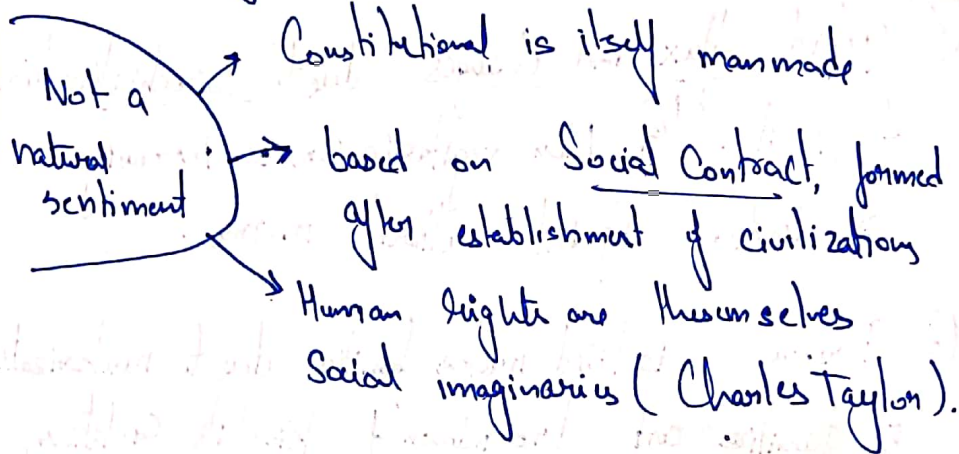 Not a
natural
sentiment
Constitutional is itself manmade.
based on Social Contract, formed
after establishment of civilizations
Human rights are themselves
Social imaginaries (Charles Taylor).